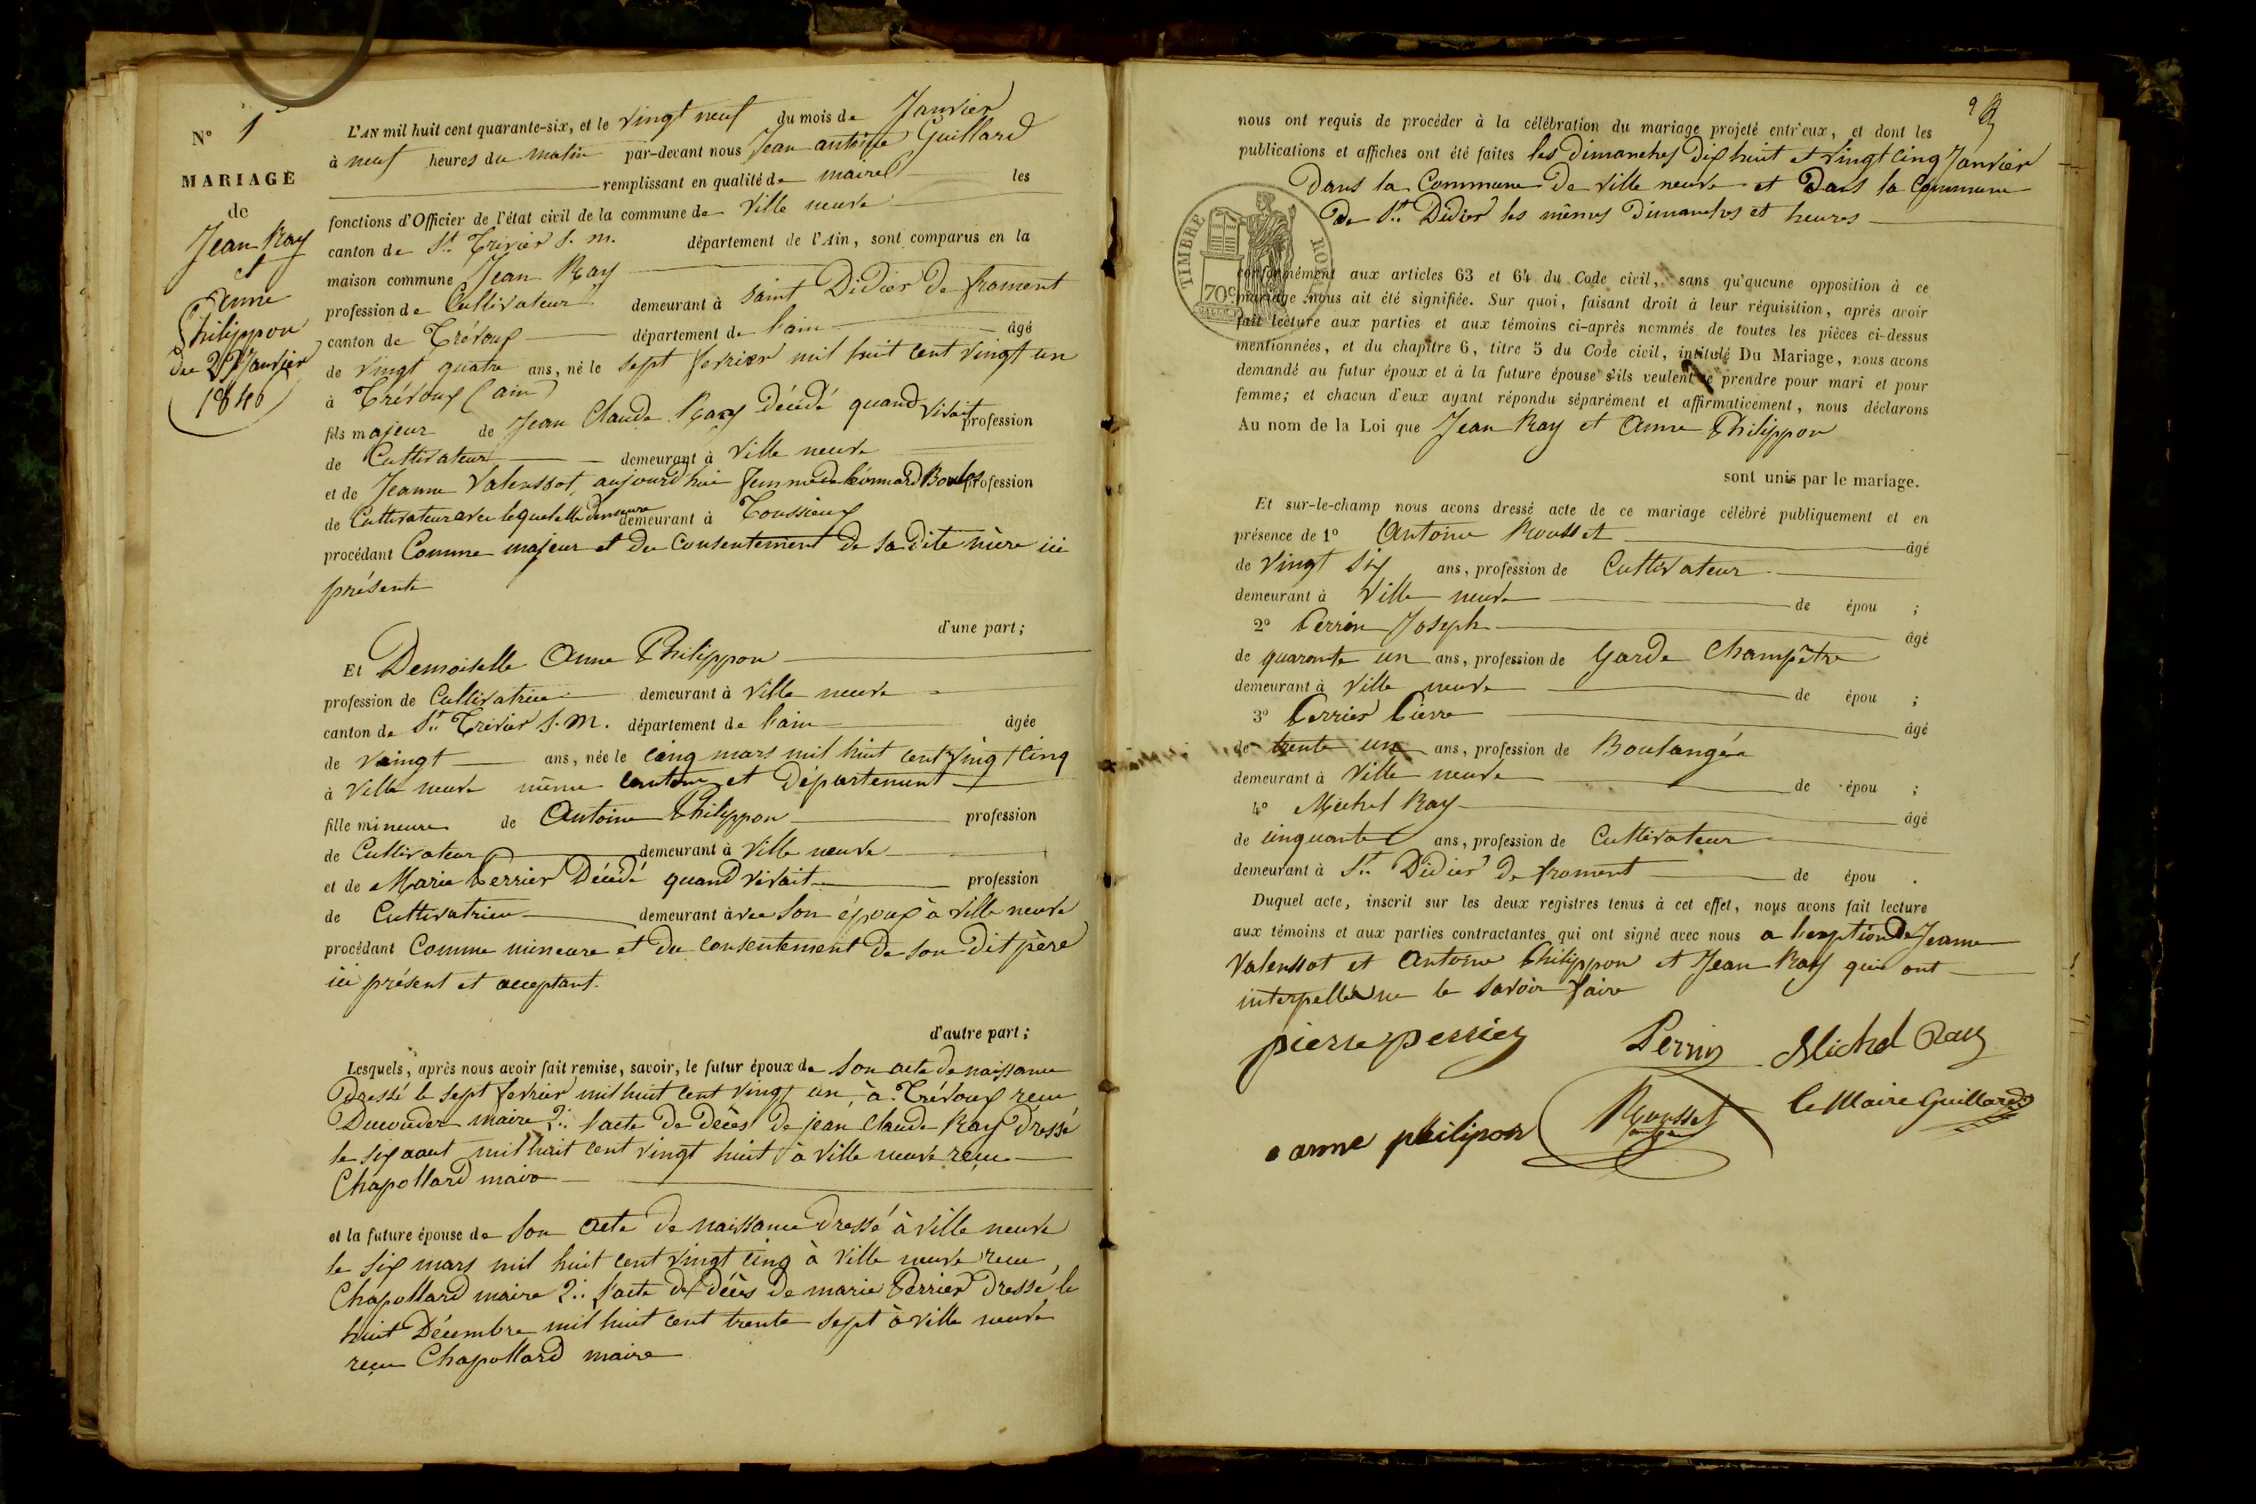 N° 1
MARIAGE
de
Jean Ray
et
Anne
Philippon
du 29 Janvier
1846
L'AN mil huit cent quarante-six, et le vingt neuf du mois de Janvier
à neuf heures du matin par-devant nous Jean antoine Guillard
remplissant en qualité de maire les
fonctions d'Officier de l'état civil de la commune de Ville neuve
canton de St. Trivier S. M. département de l'Ain, sont comparus en la
maison commune Jean Ray
profession de Cultivateur demeurant à Saint Didier de froment
canton de Trévoux département de l'ain âgé
de vingt quatre ans, né le sept fevrier mil huit cent vingt un
à Trévoux (ain)
fils majeur de Jean Claude Ray Décédé quand vivait profession
de Cultivateur demeurant à Ville neuve
et de Jeanne Valenssot, aujourd'hui femme de Léonnard Boulos profession
de Cultivateur avec lequel elle demeure demeurant à Toussieux
procédant Comme majeur et du Consentement de sa dite mère ici
présente
d'une part;
Et Demoiselle Anne Philippon
profession de Cultivatrice demeurant à Ville neuve
canton de St. Trivier S. M. département de l'ain âgée
de vaingt ans, née le cinq mars mil huit cent vingt cinq
à Ville neuve même canton et Département
fille mineure de Antoine Philippon profession
de Cultivateur demeurant à Ville neuve
et de Marie Perrier Décédé quand vivait profession
de Cultivatrice demeurant avec son époux à Ville neuve
procédant Comme mineure et du consentement de son dit père
ici présent et acceptant.
d'autre part;
Lesquels, après nous avoir fait remise, savoir, le futur époux de son acte de naissance
Dressé le sept fevrier mil huit cent vingt un, à Trévoux reçu
Ducouder maire 2.: l'acte de décès de jean Claude Ray Dressé
le six aout mil huit cent vingt huit à Ville neuve reçu
Chapollard maire
et la future épouse de son acte de naissance dressé à Ville neuve
le six mars mil huit cent vingt cinq à Ville neuve reçu
Chapollard maire 2.: l'acte de décès de marie Perrier Dressé le
huit Décembre mil huit cent trente sept à Ville neuve
reçu Chapollard maire
9
nous ont requis de procéder à la célébration du mariage projeté entr'eux, et dont les
publications et affiches ont été faites les dimanches dix huit et vingt cinq Janvier
Dans la Commune de Ville neuve et Dans la Commune
de St. Didier les mêmes Dimanches et heures
TIMBRE ROYAL
70c
conformément aux articles 63 et 64 du Code civil, sans qu'aucune opposition à ce
mariage nous ait été signifiée. Sur quoi, faisant droit à leur réquisition, après avoir
fait lecture aux parties et aux témoins ci-après nommés de toutes les pièces ci-dessus
mentionnées, et du chapitre 6, titre 5 du Code civil, intitulé Du Mariage, nous avons
demandé au futur époux et à la future épouse s'ils veulent se prendre pour mari et pour
femme; et chacun d'eux ayant répondu séparément et affirmativement, nous déclarons
Au nom de la Loi que Jean Ray et Anne Philippon
sont unis par le mariage.
Et sur-le-champ nous avons dressé acte de ce mariage célébré publiquement et en
présence de 1° Antoine Rousset âgé
de vingt six ans, profession de Cultivateur
demeurant à Ville neuve de épou ;
2° Perrin Joseph âgé
de quarante un ans, profession de Garde Champêtre
demeurant à Ville neuve de épou ;
3° Perrier Pierre âgé
de trente un ans, profession de Boulangér
demeurant à Ville neuve de épou ;
4° Michel Ray âgé
de cinquante ans, profession de Cultivateur
demeurant à St. Didier de froment de épou .
Duquel acte, inscrit sur les deux registres tenus à cet effet, nous avons fait lecture
aux témoins et aux parties contractantes qui ont signé avec nous a l'exption de Jeanne
Valenssot et Antoine Philippon et Jean Ray qui ont
interpellés ne le savoir faire
pierre perrier Perrin Michel Ray
anne philipon Rousset le Maire Guillard